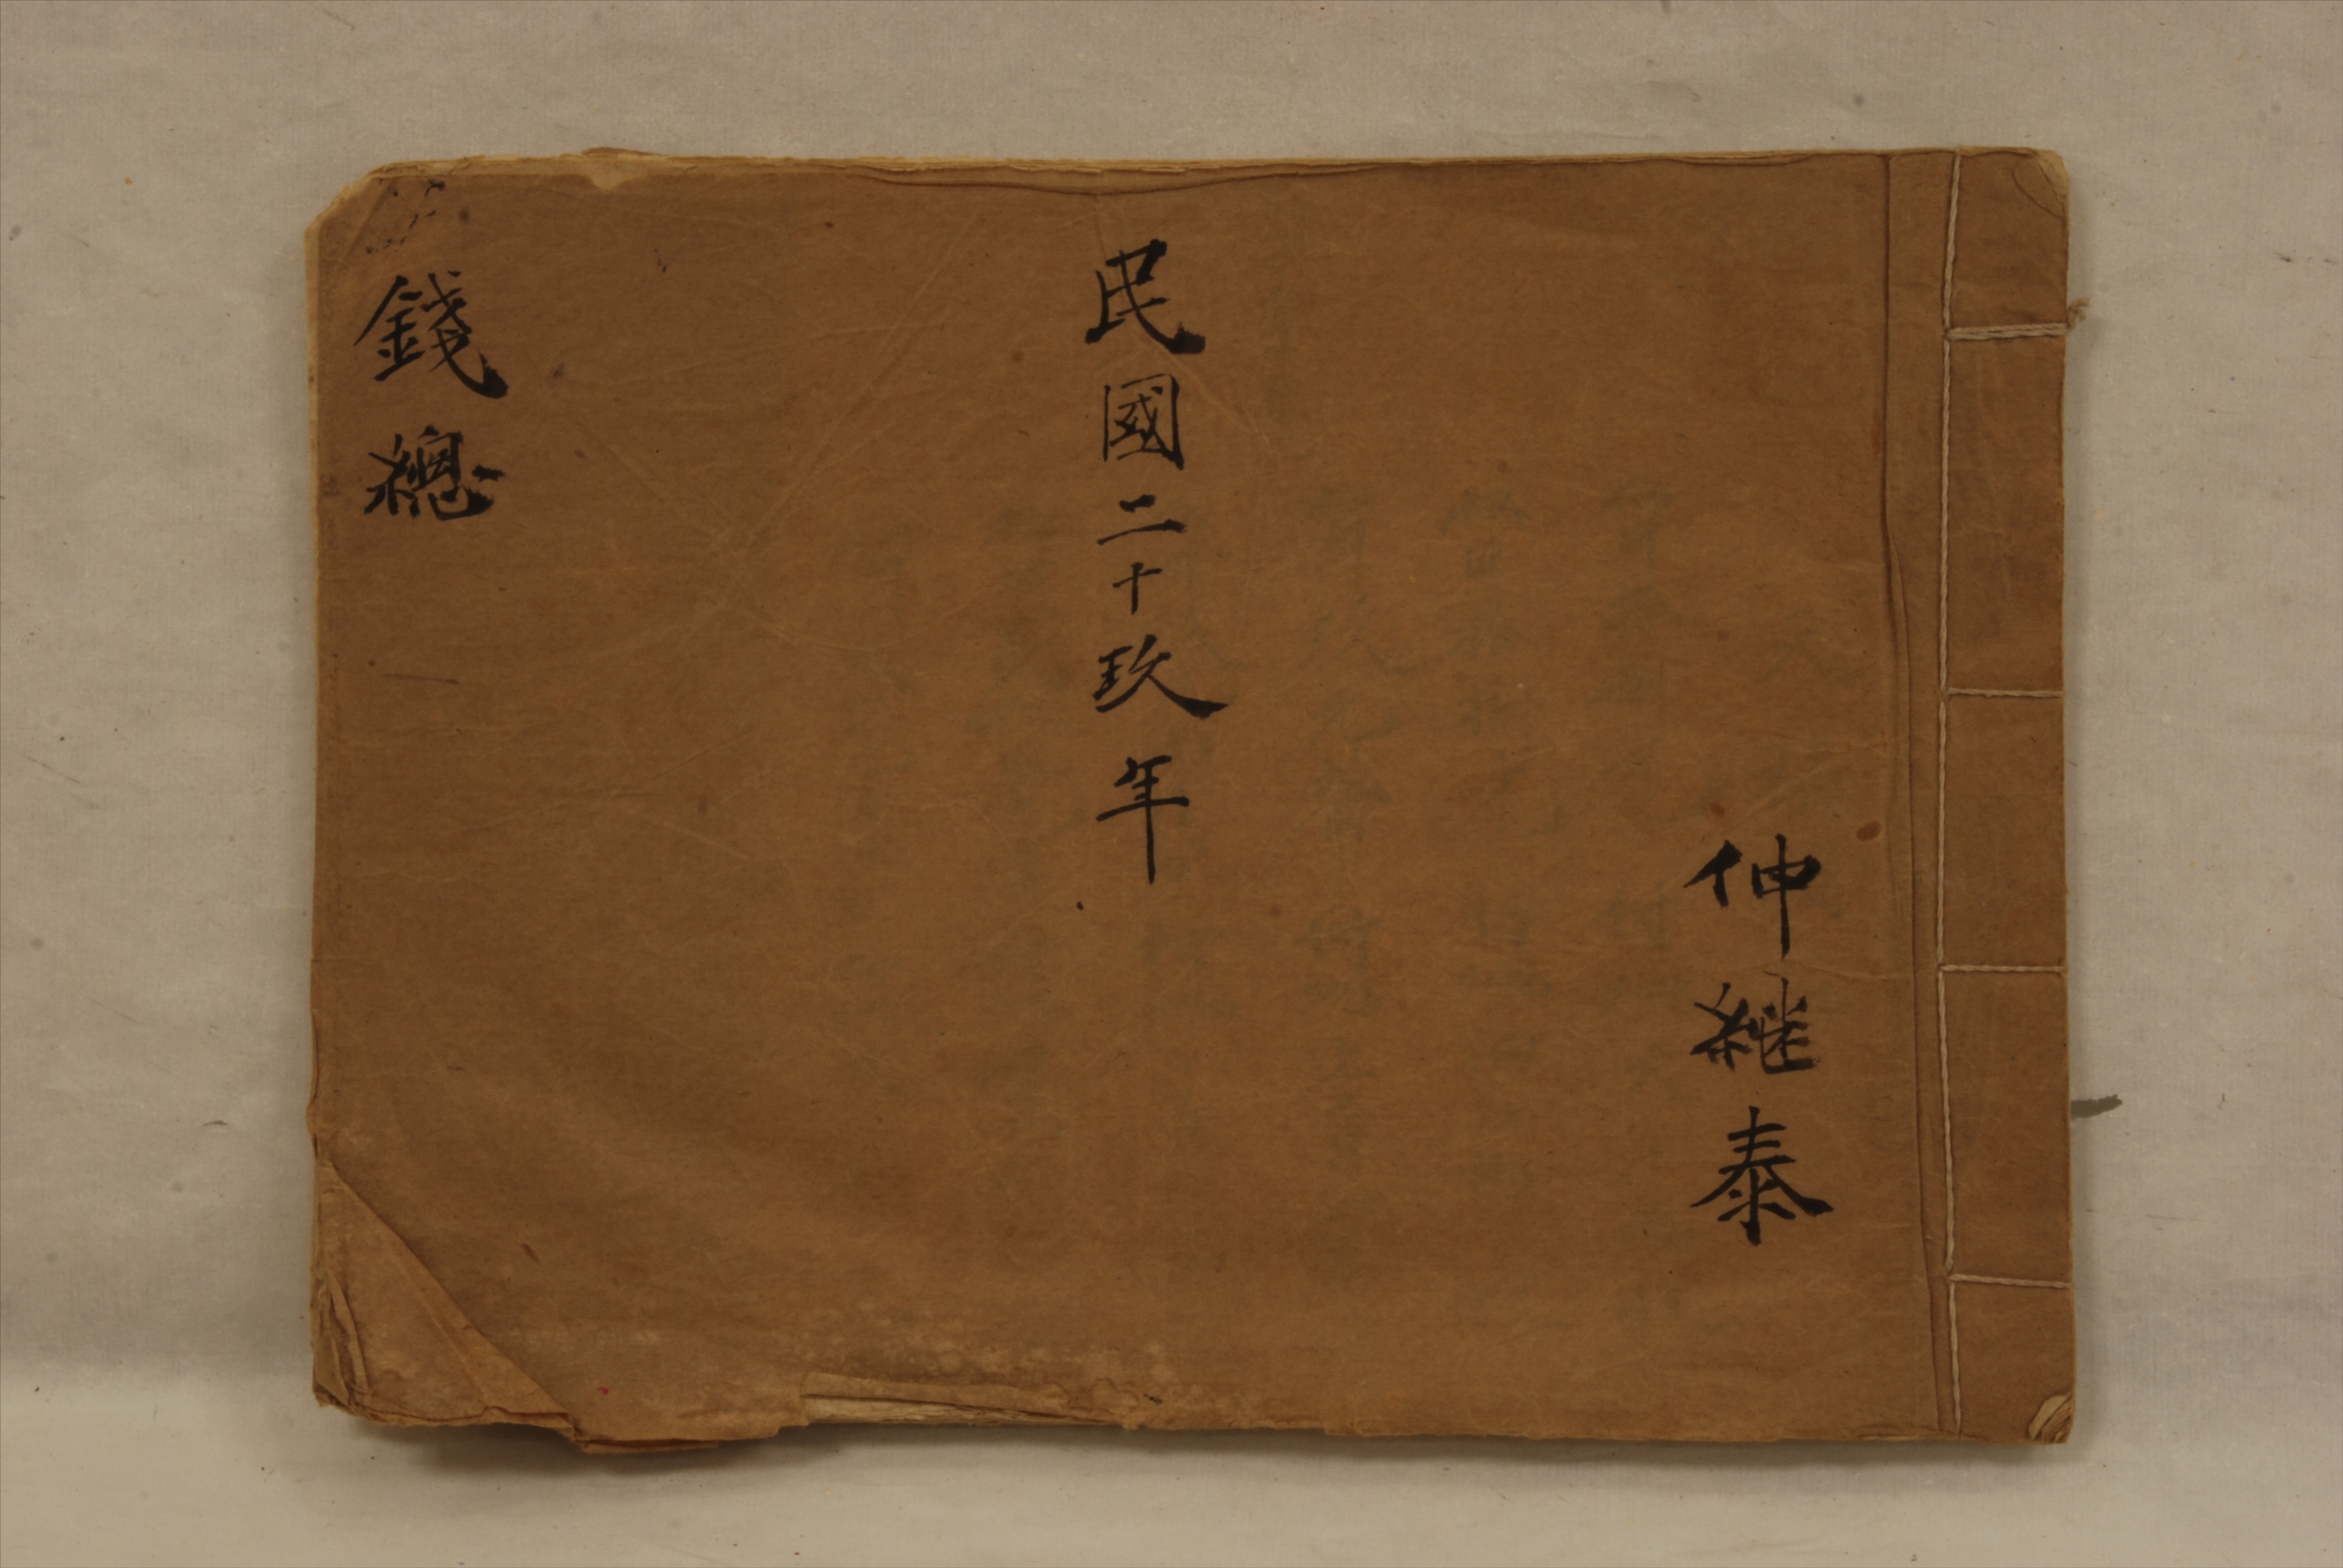 伸継泰
民國二十玖年
錢總